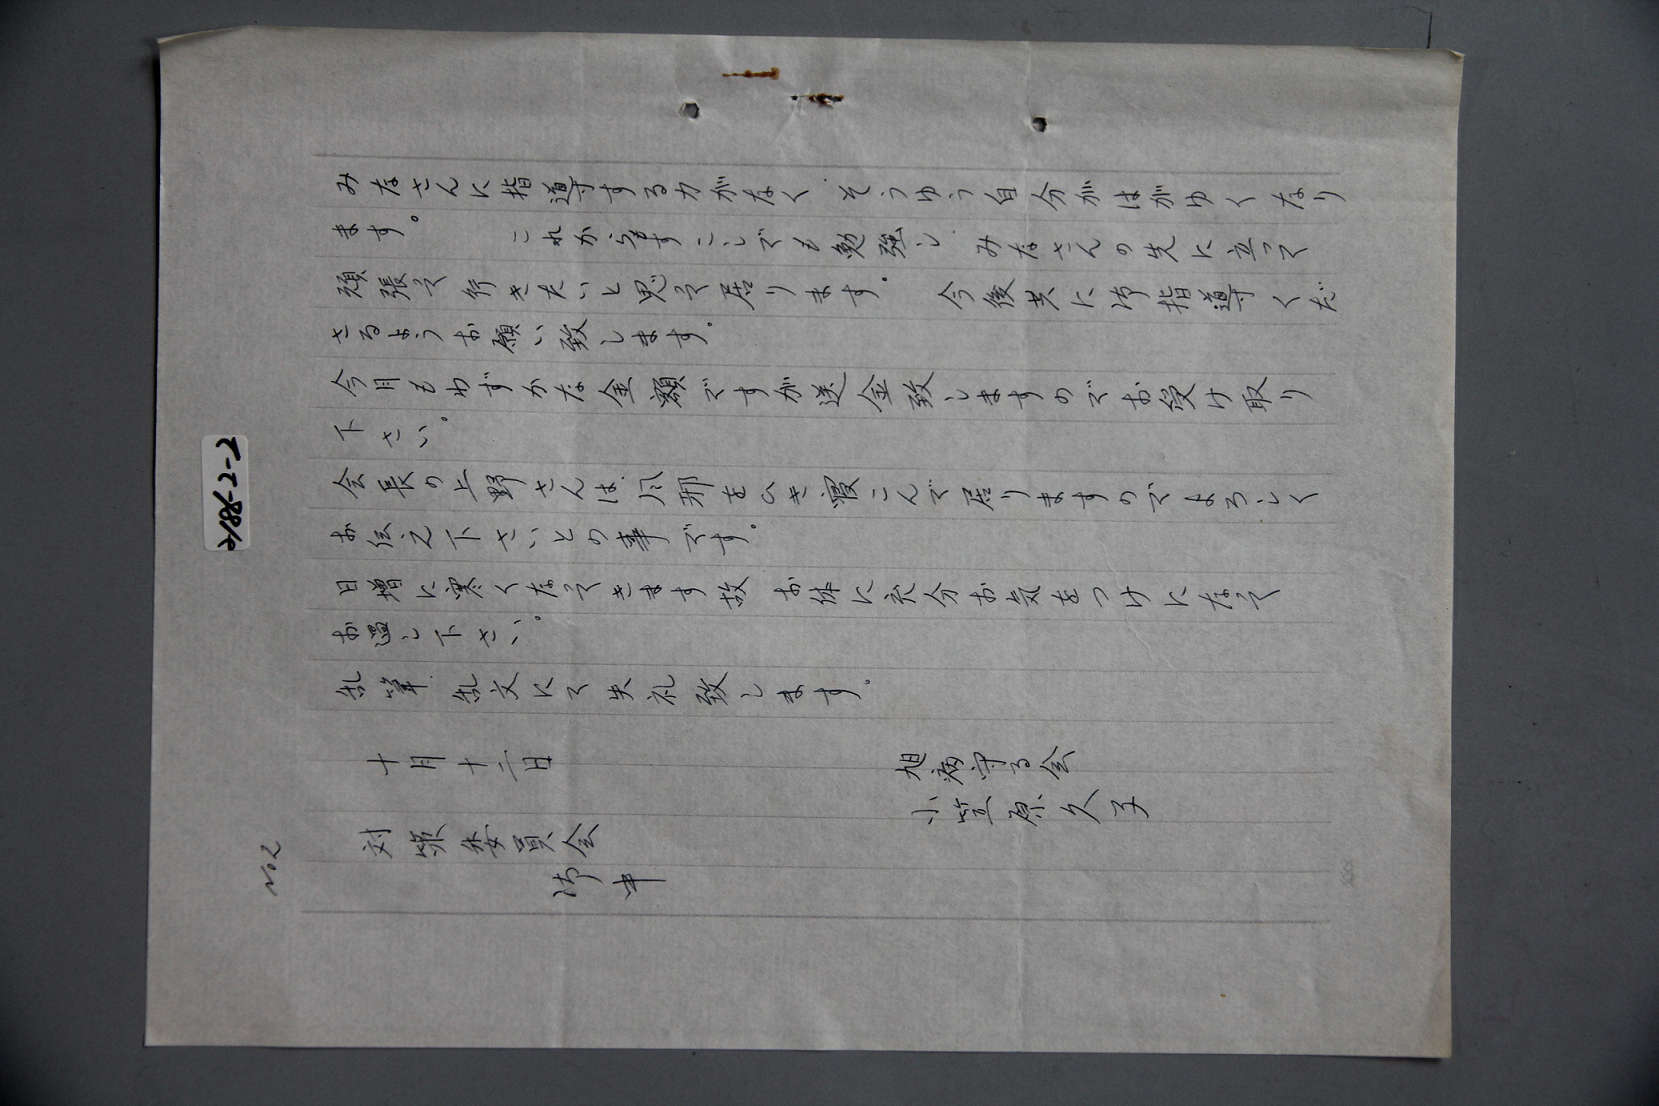 みなさんに指導する力がなく そうゆう自分がはがゆくなり
ます。 これからすこしでも勉強し みなさんの先に立って
頑張って行きたいと思って居ります。 今後共に御指導くだ
さるようお願い致します。
今月もわずかな金額ですが送金致しますのでお受け取り
下さい。
会長の上野さんは風邪をひき寝こんで居りますのでよろしく
お伝え下さいとの事です。
日増に寒くなってきます故 お体に充分お気をつけになって
お過し下さい。
乱筆 乱文にて失礼致します。
十月十二日
旭病守る会
小笠原久子
対策委員会
御中
No2